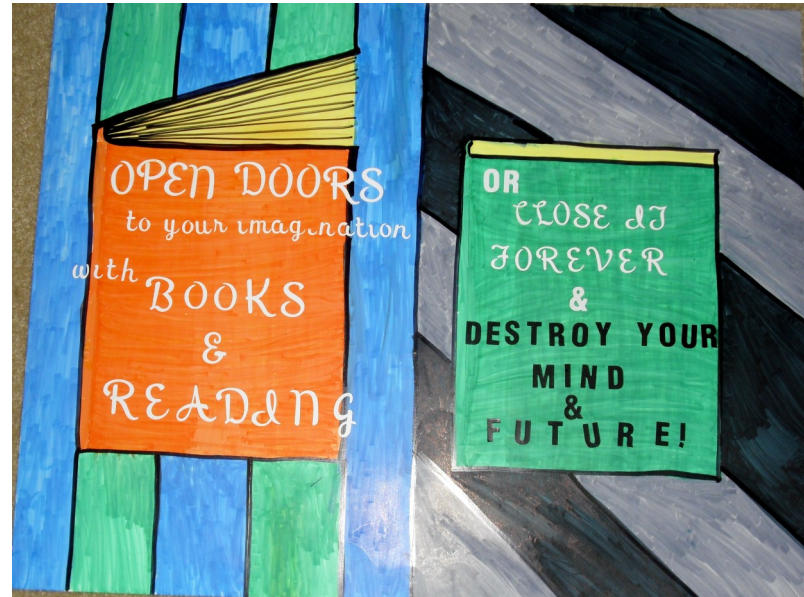 OPEN DOORS
to your imagination
with
BOOKS
&
READING
OR
CLOSE IT
FOREVER
&
DESTROY YOUR
MIND
&
FUTURE!